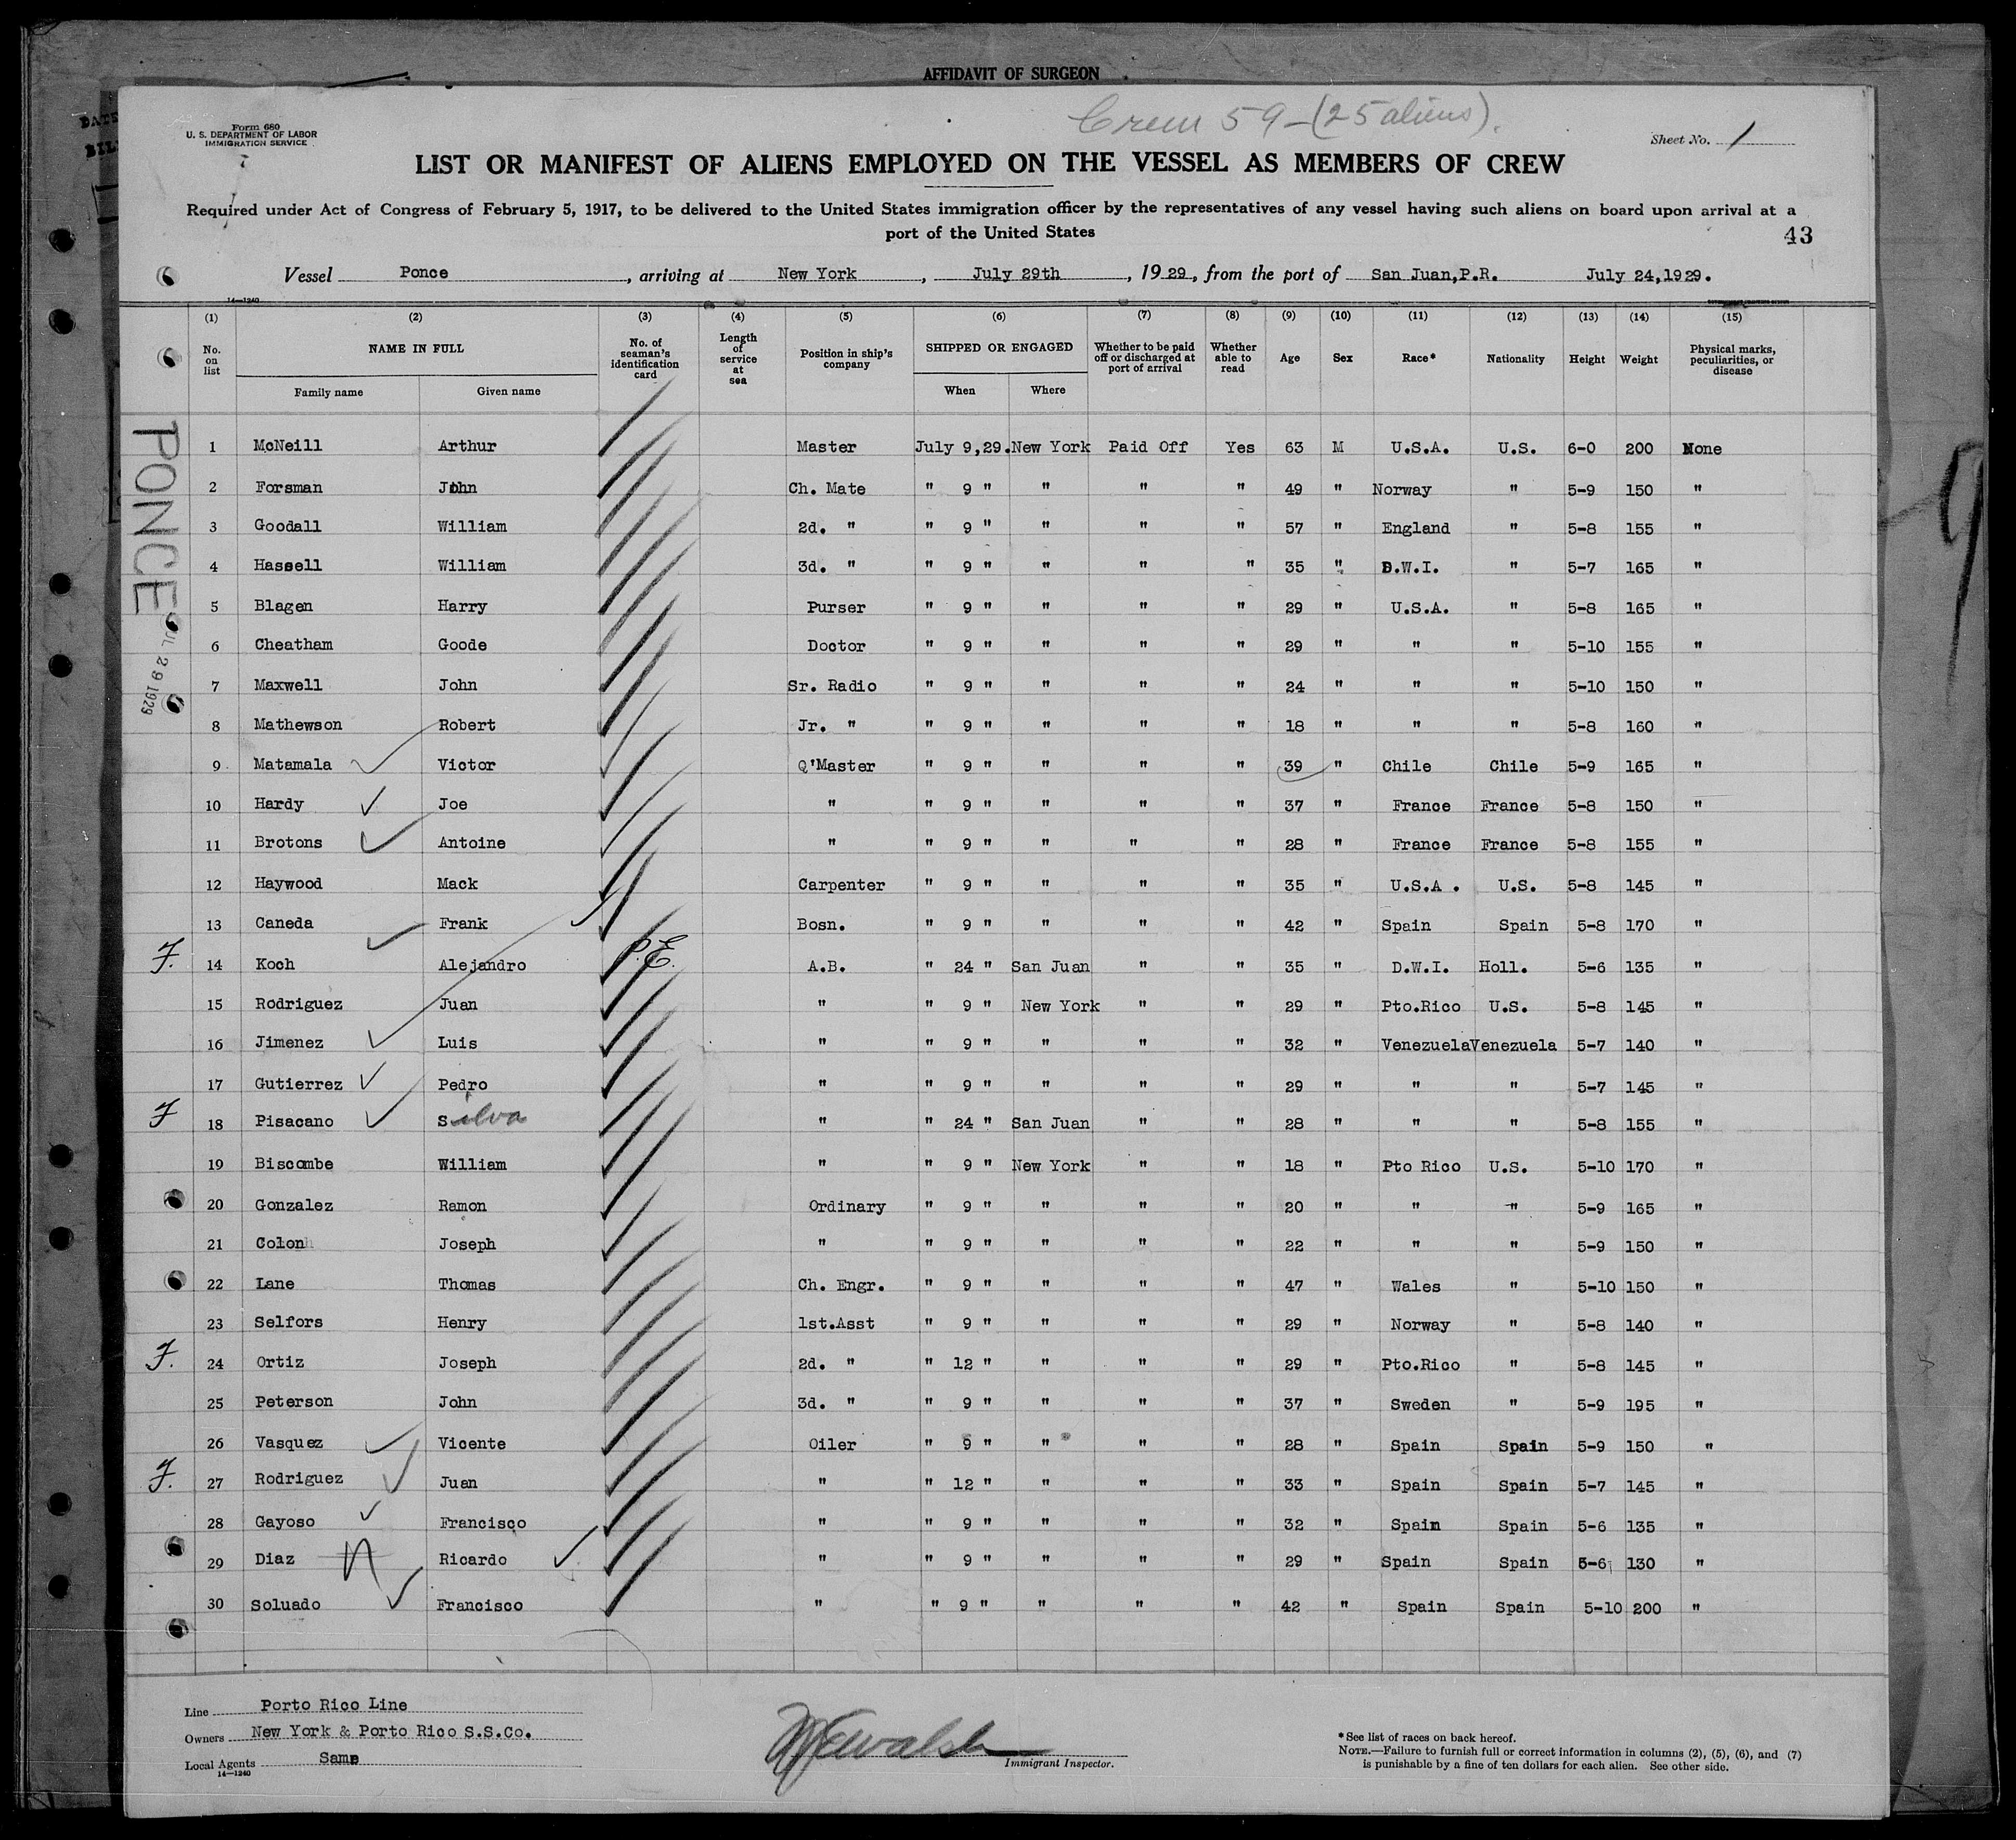 AFFIDAVIT OF SURGEON
Form 680
U. S. DEPARTMENT OF LABOR
IMMIGRATION SERVICE
Crew 59 - (25 aliens).
Sheet No. 1
LIST OR MANIFEST OF ALIENS EMPLOYED ON THE VESSEL AS MEMBERS OF CREW
Required under Act of Congress of February 5, 1917, to be delivered to the United States immigration officer by the representatives of any vessel having such aliens on board upon arrival at a
port of the United States
43
Vessel Ponce, arriving at New York, July 29th, 1929, from the port of San Juan,P.R. July 24,1929.
14—1240
(1) (2) (3) (4) (5) (6) (7) (8) (9) (10) (11) (12) (13) (14) (15)
No. on list NAME IN FULL No. of seaman's identification card Length of service at sea Position in ship's company SHIPPED OR ENGAGED Whether to be paid off or discharged at port of arrival Whether able to read Age Sex Race* Nationality Height Weight Physical marks, peculiarities, or disease
Family name Given name When Where
PONCE
JUL 29 1929
1 McNeill Arthur Master July 9,29. New York Paid Off Yes 63 M U.S.A. U.S. 6-0 200 None
2 Forsman John Ch. Mate " 9 " " " " 49 " Norway " 5-9 150 "
3 Goodall William 2d. " " 9 " " " " 57 " England " 5-8 155 "
4 Hassell William 3d. " " 9 " " " " 35 " D.W.I. " 5-7 165 "
5 Blagen Harry Purser " 9 " " " " 29 " U.S.A. " 5-8 165 "
6 Cheatham Goode Doctor " 9 " " " " 29 " " " 5-10 155 "
7 Maxwell John Sr. Radio " 9 " " " " 24 " " " 5-10 150 "
8 Mathewson Robert Jr. " " 9 " " " " 18 " " " 5-8 160 "
9 Matamala Victor Q'Master " 9 " " " " 39 " Chile Chile 5-9 165 "
10 Hardy Joe " " 9 " " " " 37 " France France 5-8 150 "
11 Brotons Antoine " " 9 " " " " 28 " France France 5-8 155 "
12 Haywood Mack Carpenter " 9 " " " " 35 " U.S.A. U.S. 5-8 145 "
13 Caneda Frank Bosn. " 9 " " " " 42 " Spain Spain 5-8 170 "
F. 14 Koch Alejandro P.E. A.B. " 24 " San Juan " " 35 " D.W.I. Holl. 5-6 135 "
15 Rodriguez Juan " " 9 " New York " " 29 " Pto.Rico U.S. 5-8 145 "
16 Jimenez Luis " " 9 " " " " 32 " Venezuela Venezuela 5-7 140 "
17 Gutierrez Pedro " " 9 " " " " 29 " " " 5-7 145 "
F 18 Pisacano Silva " " 24 " San Juan " " 28 " " " 5-8 155 "
19 Biscombe William " " 9 " New York " " 18 " Pto Rico U.S. 5-10 170 "
20 Gonzalez Ramon Ordinary " 9 " " " " 20 " " " 5-9 165 "
21 Colon Joseph " " 9 " " " " 22 " " " 5-9 150 "
22 Lane Thomas Ch. Engr. " 9 " " " " 47 " Wales " 5-10 150 "
23 Selfors Henry 1st.Asst " 9 " " " " 29 " Norway " 5-8 140 "
F. 24 Ortiz Joseph 2d. " " 12 " " " " 29 " Pto.Rico " 5-8 145 "
25 Peterson John 3d. " " 9 " " " " 37 " Sweden " 5-9 195 "
26 Vasquez Vicente Oiler " 9 " " " " 28 " Spain Spain 5-9 150 "
F. 27 Rodriguez Juan " " 12 " " " " 33 " Spain Spain 5-7 145 "
28 Gayoso Francisco " " 9 " " " " 32 " Spain Spain 5-6 135 "
29 Diaz Ricardo " " 9 " " " " 29 " Spain Spain 5-6 130 "
30 Soluado Francisco " " 9 " " " " 42 " Spain Spain 5-10 200 "
Line Porto Rico Line
Owners New York & Porto Rico S.S.Co.
Local Agents Same
14—1240
Immigrant Inspector.
*See list of races on back hereof.
NOTE.—Failure to furnish full or correct information in columns (2), (5), (6), and (7)
is punishable by a fine of ten dollars for each alien. See other side.